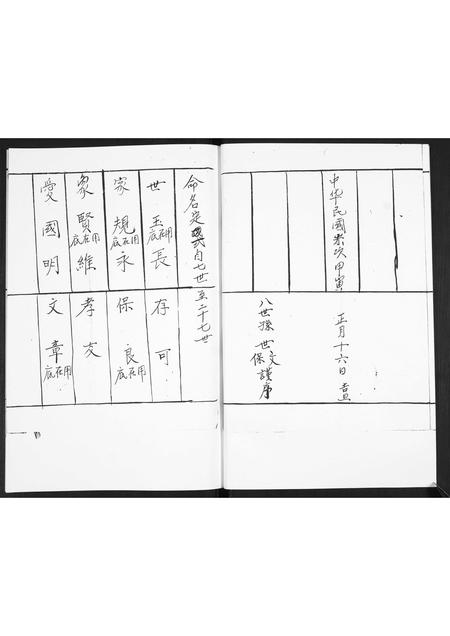 中华民國岁次甲寅 正月十六日 吉
八世孫 世文 保 謹序
命名定 自七世至二十七世
世玉底在用長 存可
家規底在用永 保良底在用
象賢底在用維 孝友
愛國明 文章底在用